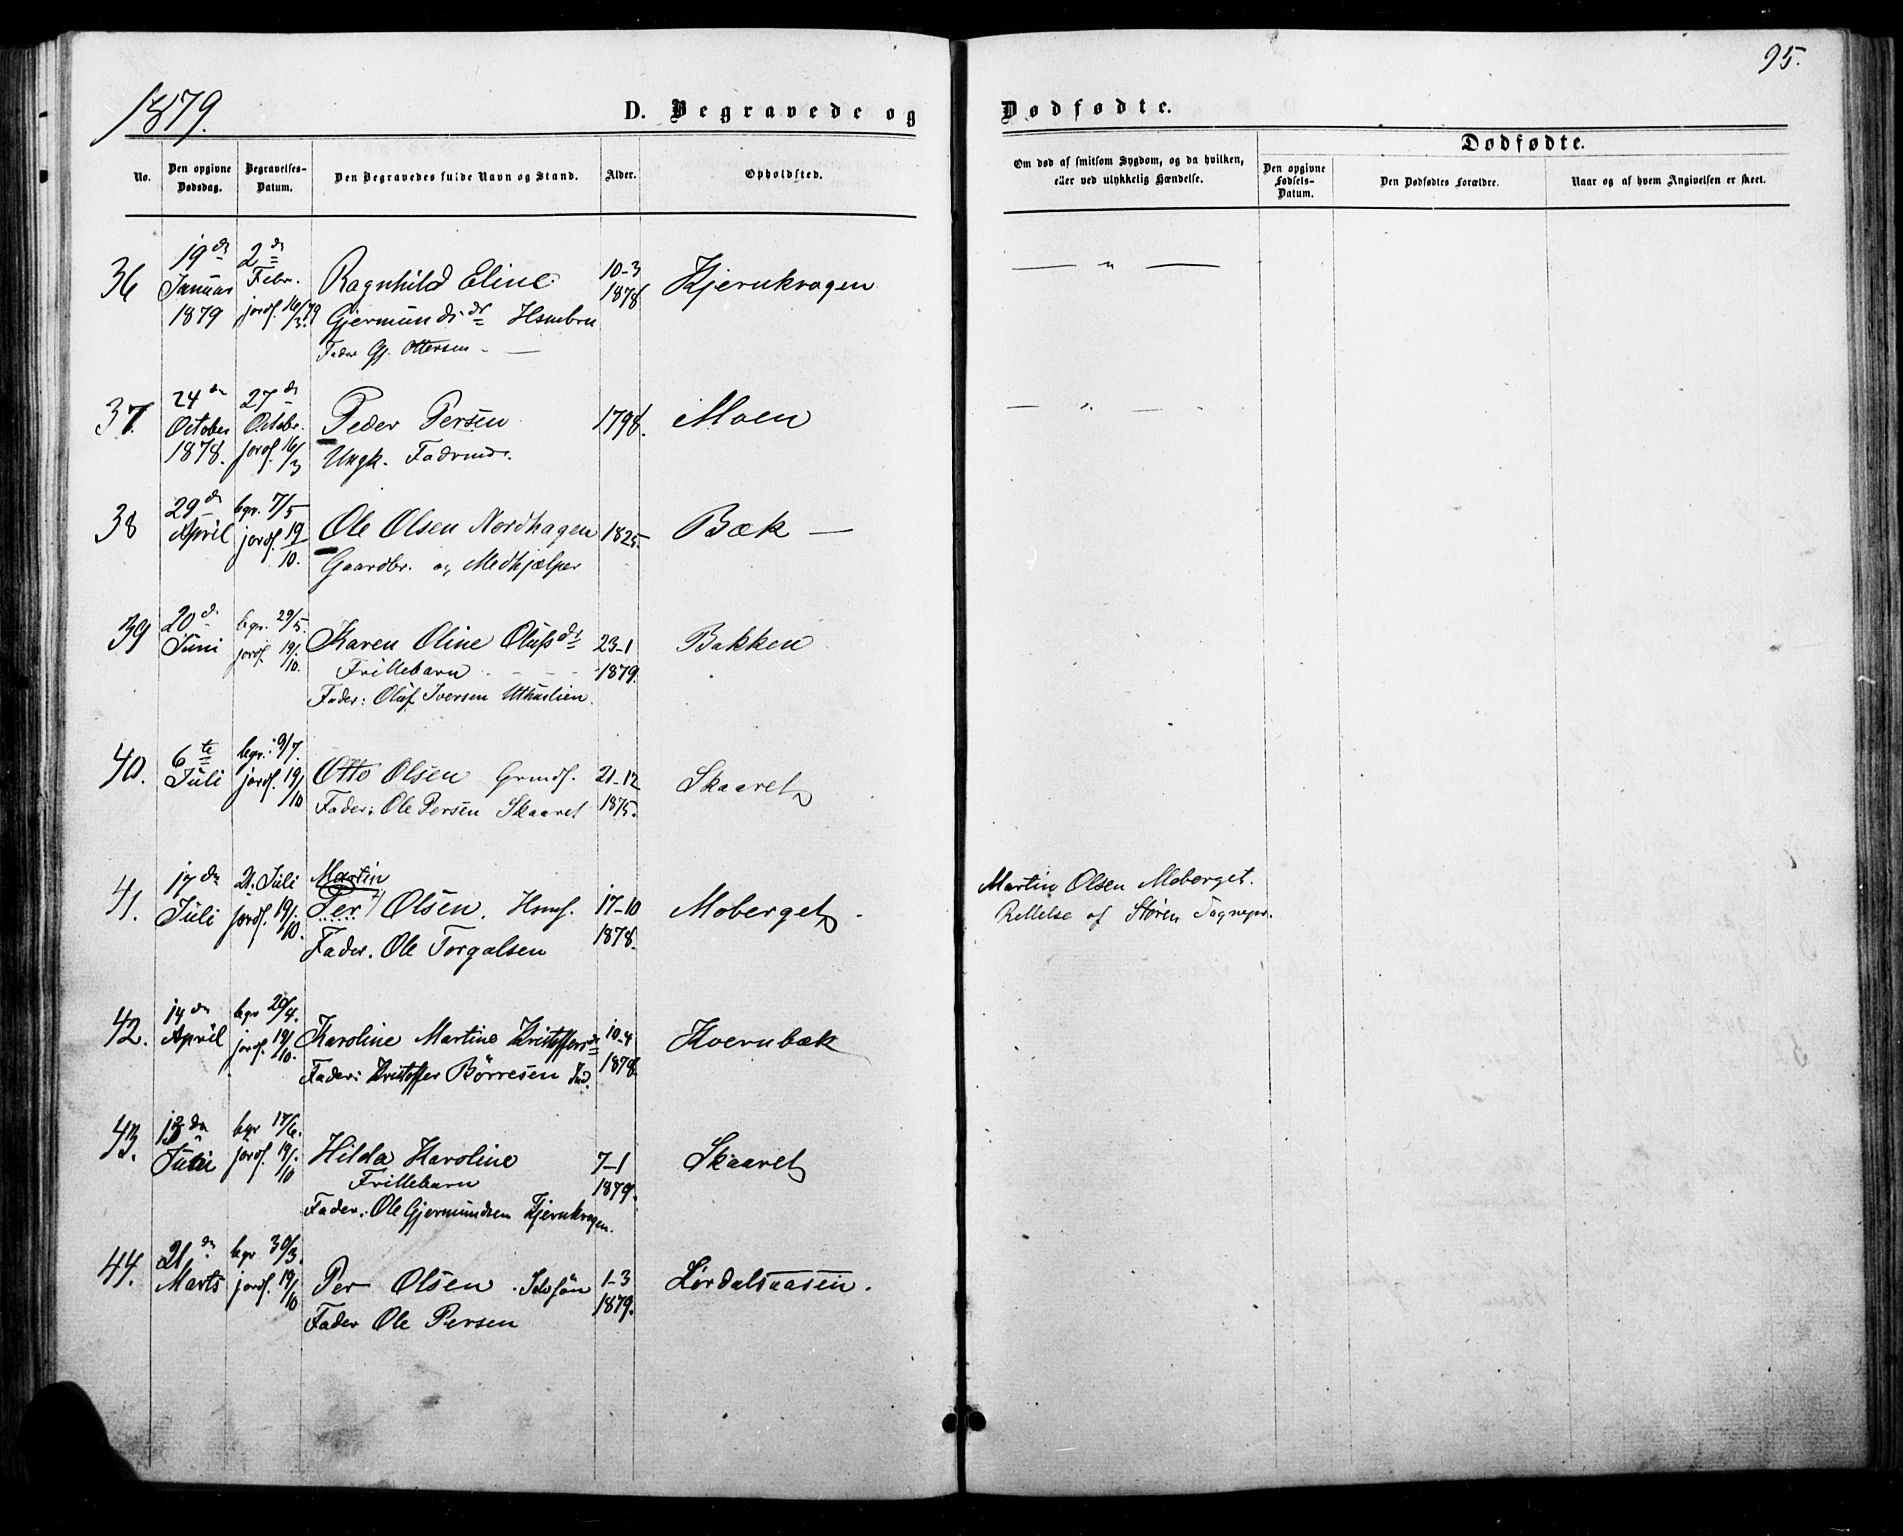 1879.
95.
D. Begravede og Dødfødte.
No.
Den opgivne Dødsdag.
Begravelses-Datum.
Den Begravedes fulde Navn og Stand.
Alder.
Opholdsted.
Om død af smitsom Sygdom, og da hvilken, eller ved ulykkelig Hændelse.
Dødfødte.
Den opgivne Fødsels-Datum.
Den Dødfødtes Forældre.
Naar og af hvem Angivelsen er skeet.
36 19de Januar 1879 2den Febr. jordf. 16/3 79
Ragnhild Eline 10-3 1878 Kjernkrogen — " —
Gjermundsdr
Fader Gj. Ottersen
37. 24de October 1878. 27de Octobr. jordf. 16/3
Peder Persen 1798. Moen — " —
Ungk. Fadrmd.
38 29de April begr. 7/5 jordf. 19/10.
Ole Olsen Nordhagen 1825. Bæk —
Gaardbr. og Medhjælper
39 20de Juni begr. 29/5. jordf. 19/10.
Karen Oline Olufsdr 23-1 1879. Bakken
Frillebarn
Fader: Oluf Iversen
40. 6te Juli begr. 9/7. jordf. 19/10
Otto Olsen Grmdf. 21-12 1875. Skaaret
Fader: Ole Persen Skaaret
41. 17de Juli 21. Juli jordf. 19/10.
Martin
Per Olsen. Hsmf. 17-10 1878. Moberget
Fader. Ole Torgalsen
Martin Olsen Moberget.
Rettelse af Støren Sognepr.
42. 14de April begr 20/4. jordf. 19/10.
Karoline Martine Kristoffersdr 10-4 1878. Kvernbæk
Fader: Kristoffer Børresen Ind.
43. 13de Juni begr 17/6. jordf. 19/10
Hilda Karoline 7-1 1879. Skaaret
Frillebarn
Fader: Ole Gjermundsen Kjernkrogen.
44. 21de Marts begr 30/3. jordf. 19/10
Per Olsen 1-3 1879. Lørdalsaasen.
Fader Ole Persen